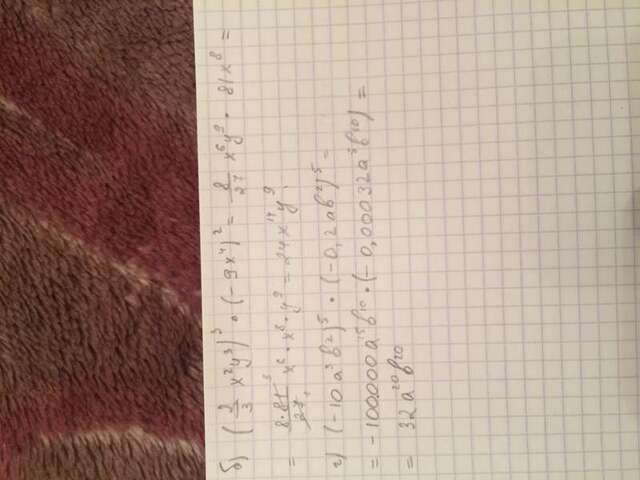 б) (2/3 x²y³)³ • (-9x⁴)² = 8/27 x⁶y⁹ • 81x⁸ =
= 8·81³/27₁ x⁶ • x⁸ • y⁹ = 24x¹⁴y⁹.
г) (-10a³b²)⁵ • (-0,2ab²)⁵ =
= -100000a¹⁵b¹⁰ • (-0,00032a⁵b¹⁰) =
= 32a²⁰b²⁰